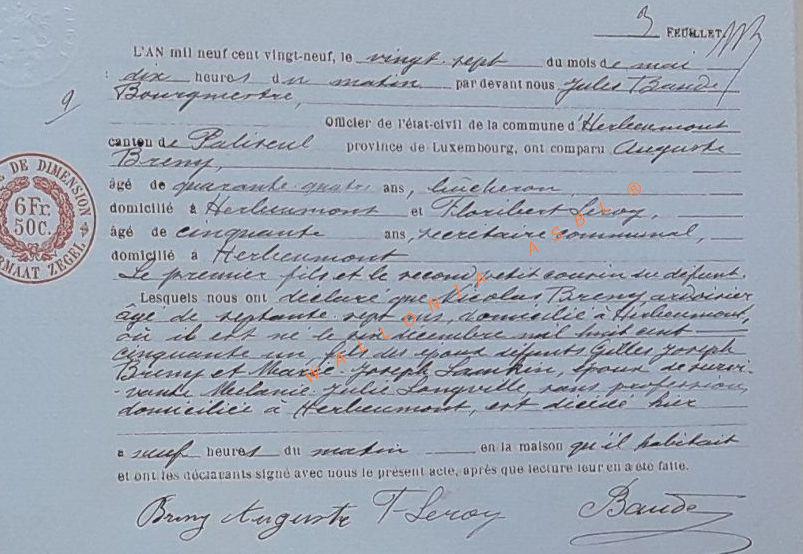 3 FEUILLET
L'AN mil neuf cent vingt-neuf, le vingt sept du mois de mai
dix heures du matin par devant nous Jules Baude
9
Bourgmestre,
Officier de l'état-civil de la commune d'Herbeumont
canton de Paliseul province de Luxembourg, ont comparu Auguste
Breny,
âgé de quarante quatre ans, bûcheron,
domicilié à Herbeumont et Floribert Leroy,
âgé de cinquante ans, secrétaire communal,
domicilié à Herbeumont
Le premier fils et le second petit cousin du défunt.
Lesquels nous ont déclaré que Nicolas Breny, ardoisier
âgé de septante sept ans, domicilié à Herbeumont,
où il est né le six décembre mil huit cent
cinquante un fils des époux défunts Gilles Joseph
Breny et Marie-Joseph Lambin, époux de survi-
-vante Mélanie Julie Longville, sans profession,
domiciliée à Herbeumont, est décédé hier
a neuf heures du matin en la maison qu'il habitait
et ont les déclarants signé avec nous le présent acte, après que lecture leur en a été faite.
Breny Auguste F Leroy Baude
DE DIMENSION
6Fr.
50c.
FORMAAT ZEGEL
WALLONIA ASBL ®